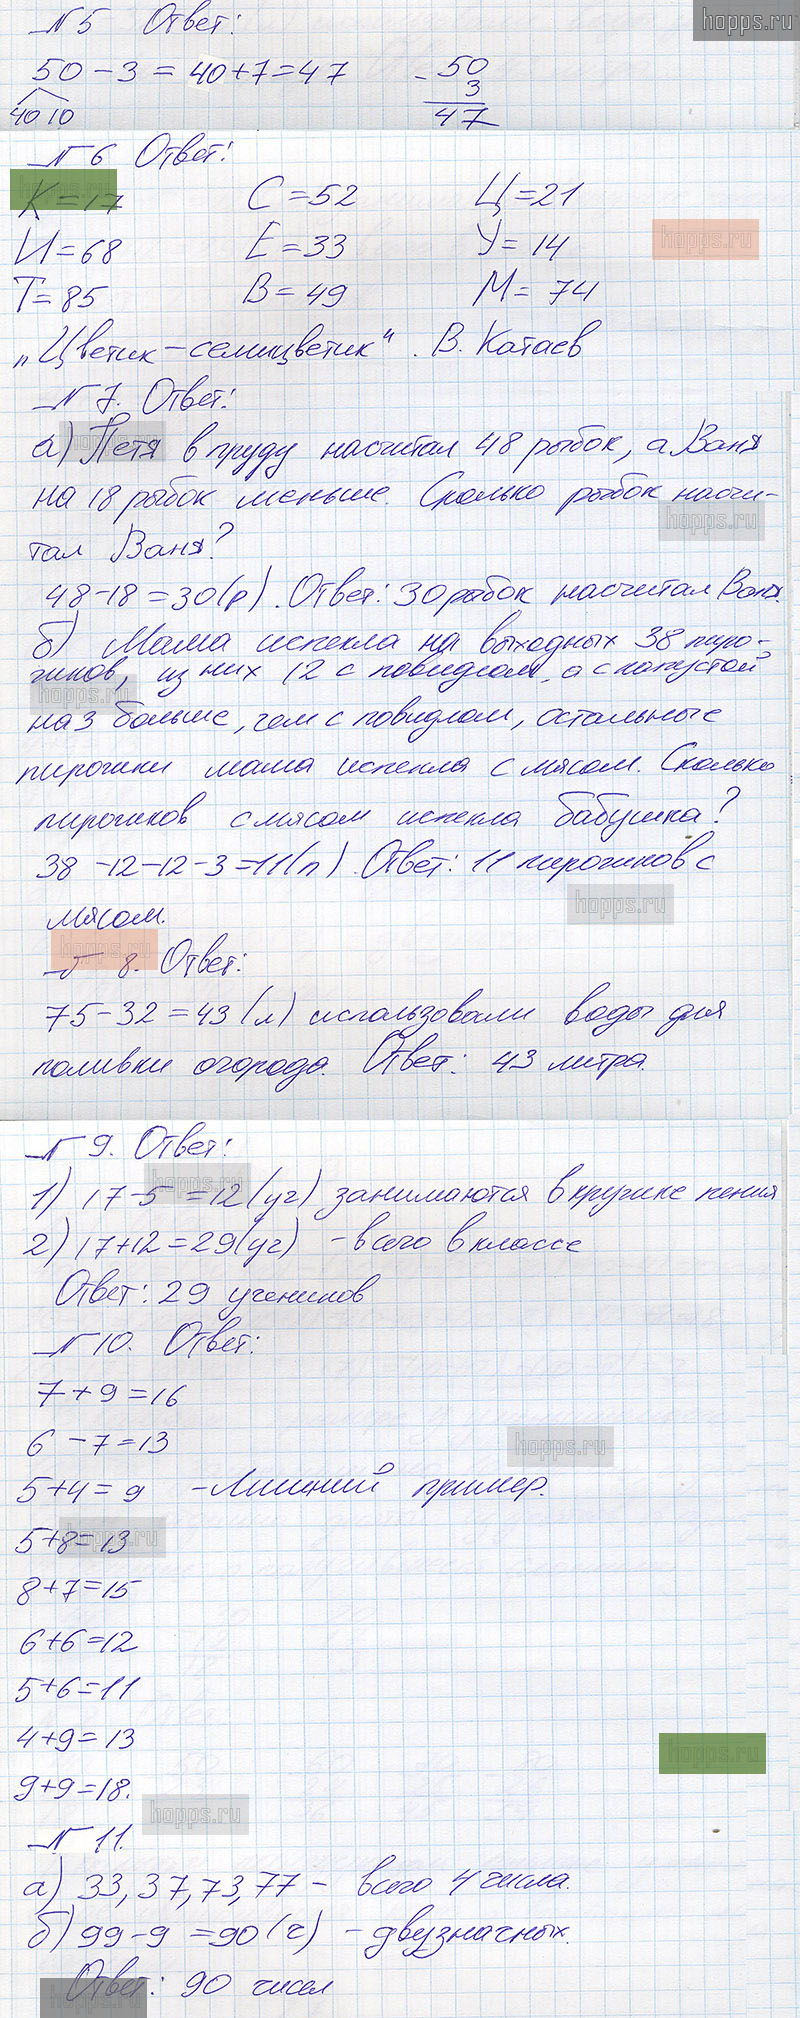 hopps.ru
№5 Ответ:
50 - 3 = 40+7=47
- 50
40 10
3
47
№6 Ответ:
К=17 С=52 Ц=21
hopps.ru
И=68 Е=33 У=14
Т=85 В=49 М=74
„Цветик-семицветик“. В. Катаев
№7. Ответ:
а) Петя в пруду насчитал 48 рыбок, а Ваня
на 18 рыбок меньше. Сколько рыбок насчи-
hopps.ru
тал Ваня?
48-18=30(р). Ответ: 30 рыбок насчитал Ваня.
б) Мама испекла на выходных 38 пиро-
жков, из них 12 с повидлом, а с капустой
hopps.ru
на 3 больше, чем с повидлом, остальные
пирожки мама испекла с мясом. Сколько
пирожков с мясом испекла бабушка?
38-12-12-3=11(п). Ответ: 11 пирожков с
hopps.ru
мясом.
№8. Ответ:
75-32=43(л) использовали воды для
поливки огорода. Ответ: 43 литра.
№9. Ответ:
1) 17-5=12(уч) занимаются в кружке пения
2) 17+12=29(уч) - всего в классе
Ответ: 29 учеников
№10. Ответ:
7+9=16
6-7=13
hopps.ru
5+4=9 - Лишний пример.
5+8=13
8+7=15
6+6=12
5+6=11
4+9=13
hopps.ru
9+9=18.
hopps.ru
№11.
а) 33, 37, 73, 77 - всего 4 числа.
б) 99-9=90(ч) - двузначных.
Ответ: 90 чисел